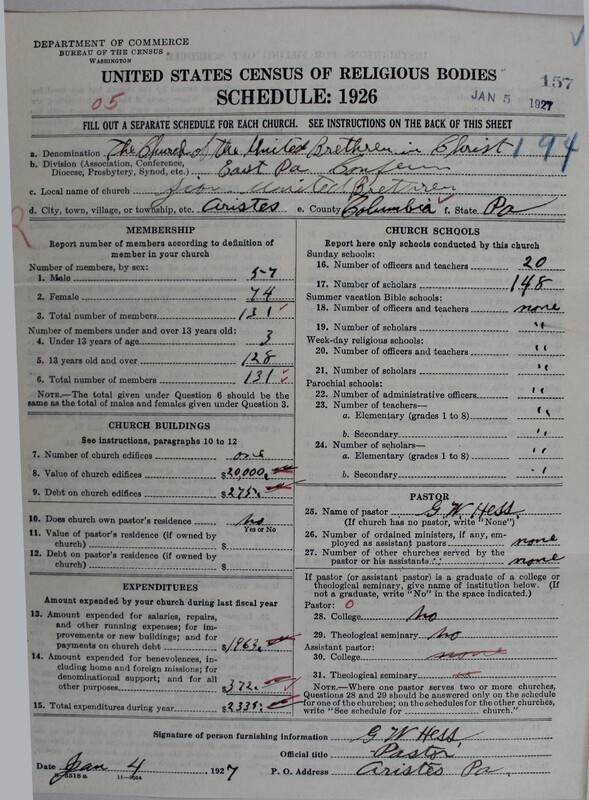 DEPARTMENT OF COMMERCE
BUREAU OF THE CENSUS
WASHINGTON
UNITED STATES CENSUS OF RELIGIOUS BODIES
157
SCHEDULE: 1926
05
JAN 5 1927
FILL OUT A SEPARATE SCHEDULE FOR EACH CHURCH. SEE INSTRUCTIONS ON THE BACK OF THIS SHEET
a. Denomination The Church of the United Brethren in Christ 194
b. Division (Association, Conference, Diocese, Presbytery, Synod, etc.) East Pa
c. Local name of church Zion United Brethren
d. City, town, village, or township, etc. Aristes e. County Columbia f. State Pa
MEMBERSHIP
Report number of members according to definition of member in your church
Number of members, by sex:
1. Male 57
2. Female 74
3. Total number of members 131
Number of members under and over 13 years old:
4. Under 13 years of age 3
5. 13 years old and over 128
6. Total number of members 131
NOTE.—The total given under Question 6 should be the same as the total of males and females given under Question 3.
CHURCH BUILDINGS
See instructions, paragraphs 10 to 12
7. Number of church edifices one
8. Value of church edifices $20,000
9. Debt on church edifices $275
10. Does church own pastor's residence No
Yes or No
11. Value of pastor's residence (if owned by church) $
12. Debt on pastor's residence (if owned by church) $
EXPENDITURES
Amount expended by your church during last fiscal year
13. Amount expended for salaries, repairs, and other running expenses; for improvements or new buildings; and for payments on church debt $1963.
14. Amount expended for benevolences, including home and foreign missions; for denominational support; and for all other purposes 372.
15. Total expenditures during year $2335.
CHURCH SCHOOLS
Report here only schools conducted by this church
Sunday schools:
16. Number of officers and teachers 20
17. Number of scholars 148
Summer vacation Bible schools:
18. Number of officers and teachers none
19. Number of scholars "
Week-day religious schools:
20. Number of officers and teachers "
21. Number of scholars "
Parochial schools:
22. Number of administrative officers "
23. Number of teachers—
a. Elementary (grades 1 to 8) "
b. Secondary "
24. Number of scholars—
a. Elementary (grades 1 to 8) "
b. Secondary "
PASTOR
25. Name of pastor G W Hess
(If church has no pastor, write "None")
26. Number of ordained ministers, if any, employed as assistant pastors none
27. Number of other churches served by the pastor or his assistants none
If pastor (or assistant pastor) is a graduate of a college or theological seminary, give name of institution below. (If not a graduate, write "No" in the space indicated.)
Pastor: 0
28. College No
29. Theological seminary No
Assistant pastor:
30. College none
31. Theological seminary
NOTE.—Where one pastor serves two or more churches, Questions 28 and 29 should be answered only on the schedule for one of the churches; on the schedules for the other churches, write "See schedule for church."
Signature of person furnishing information G W Hess,
Official title Pastor
Date Jan 4 1927 P. O. Address Aristes Pa.